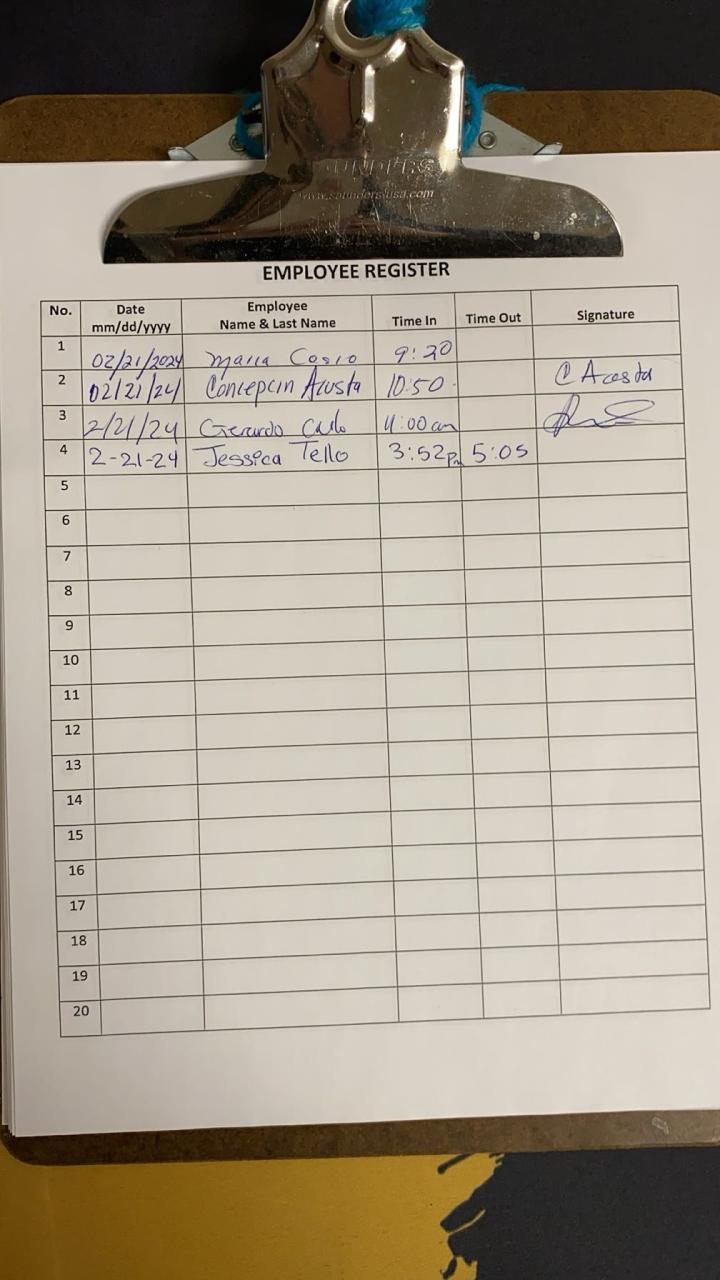 SAUNDERS
www.saunders-usa.com
EMPLOYEE REGISTER
No. Date mm/dd/yyyy Employee Name & Last Name Time In Time Out Signature
1 02/21/2024 Maria Cosio 9:20
2 02/21/24 Concepcin Acosta 10:50 C Acosta
3 2/21/24 Gerardo 11:00am
4 2-21-24 Jessica Tello 3:52pm 5:05
5
6
7
8
9
10
11
12
13
14
15
16
17
18
19
20